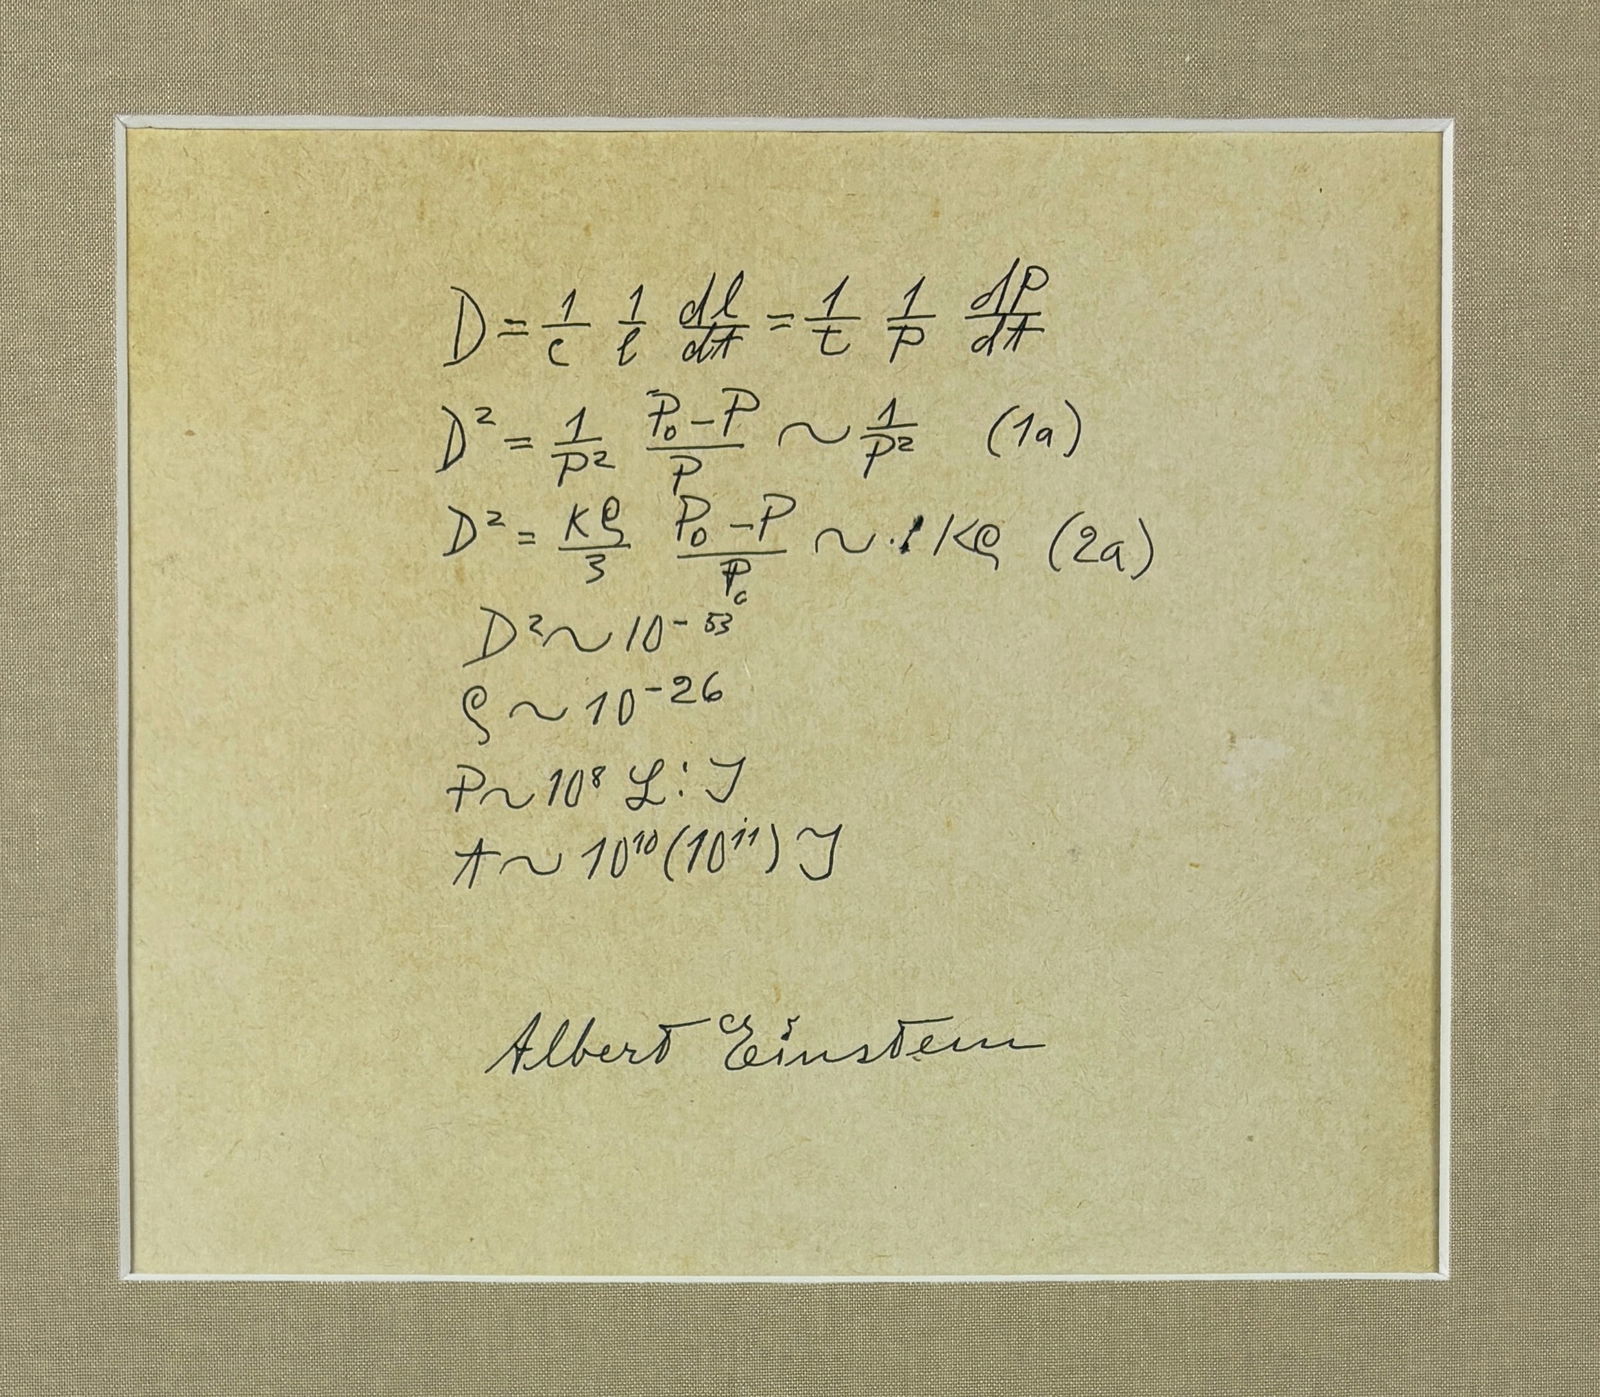 D = 1/c 1/l dl/dt = 1/t 1/P dP/dt
D² = 1/P² P₀-P/P ~ 1/P² (1a)
D² = Kρ/3 P₀-P/P₀ ~ Kρ (2a)
D² ~ 10⁻⁵³
ρ ~ 10⁻²⁶
P ~ 10⁸ L. J
t ~ 10¹⁰ (10¹¹) J
Albert Einstein